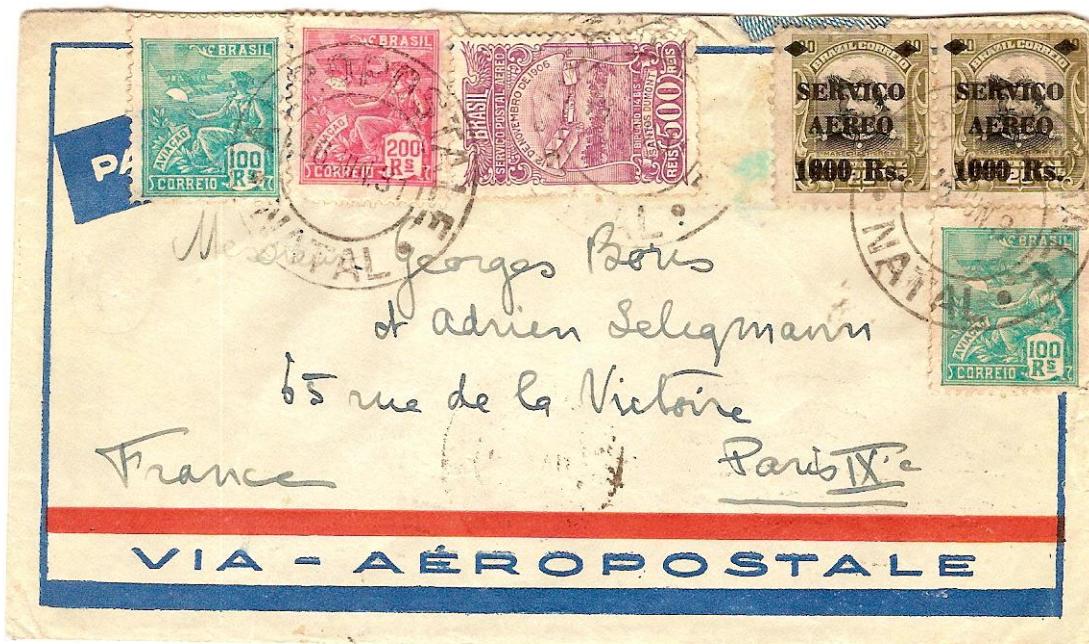 BRASIL
AVIAÇÃO
100 Rs
CORREIO
BRASIL
AVIAÇÃO
200 Rs
CORREIO
BRASIL
SERVIÇO POSTAL AEREO
12 DE NOVEMBRO DE 1906
BIPLANO 14 BIS
SANTOS DUMONT
500 REIS REIS
BRAZIL CORREIO
SERVICO
AEREO
1000 Rs.
BRAZIL CORREIO
SERVICO
AEREO
1000 Rs.
BRASIL
AVIAÇÃO
100 Rs
CORREIO
PA
NATAL
NATAL
Messieurs Georges Boris
et Adrien Seligmann
65 rue de la Victoire
France Paris IXe
VIA - AÉROPOSTALE